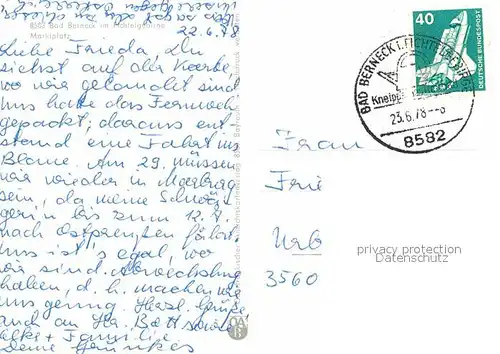 22.6.78
8582 Bad Berneck im Fichtelgebirge
Marktplatz
Liebe Frieda du
siehst auf der Karte,
wo wir gelandet sind
uns hatte das Fernweh
gepackt; daraus ent-
stand eine Fahrt ins
Blaue. Am 29. müssen
wir wieder in Marburg
sein, da meine Schwä-
gerin bis zum 12.7.
nach Ostpreußen fährt.
uns ist's egal, wo
wir sind. Abwechslung
haben, d. h. machen wir
uns genug. Herzl. Grüße
auch an
Familie
Deine
40
DEUTSCHE BUNDESPOST
BAD BERNECK I. FICHTELGEBIRGE
Kneipp
23.6.78-8
8582
Frau
Frie
Urb
3560
privacy protection
Datenschutz